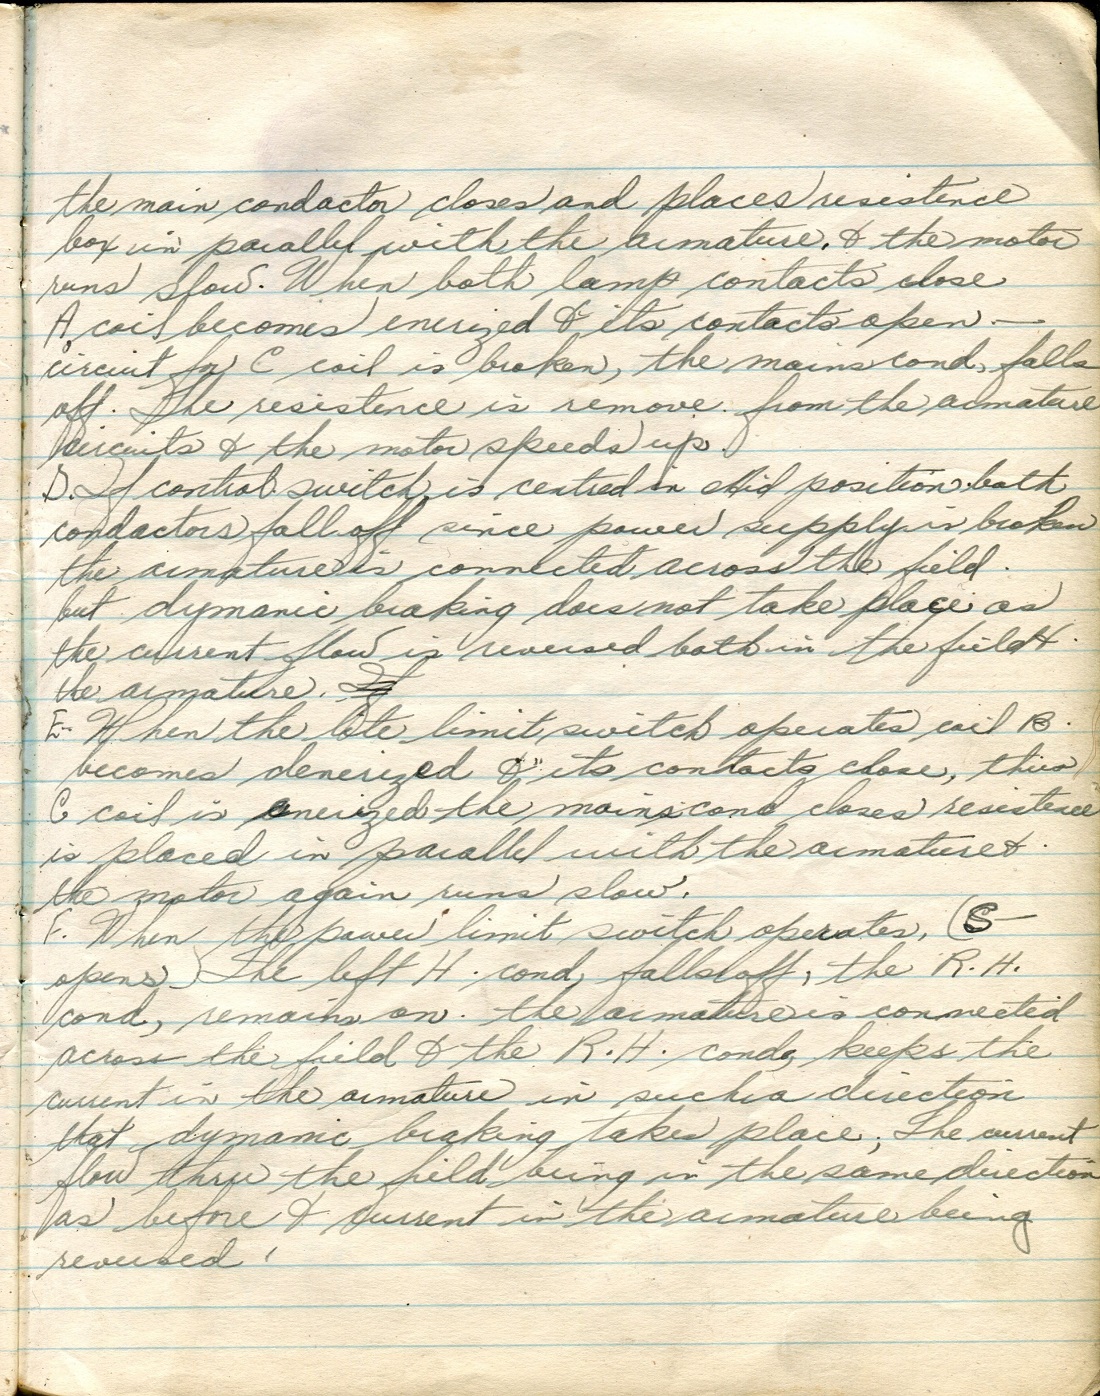 the main conductor closes and places resistence
box in parallel with the armature. & the motor
runs slow. When both lamp contacts close
A coil becomes enerized & its contacts open —
circuit for C coil is broken, the mains cond, falls
off. The resistence is remove. from the armature
circuits & the motor speeds up.
D. If control switch is centred in mid position both
conductors fall off since power supply is broken
the armature is connected across the field.
but dymanic braking does not take place as
the current flow is reversed both in the field &
the armature. If
E- When the lite limit switch operates coil B.
becomes denerized & its contacts close, thus
C coil is enerized the mains cond closes resistence
is placed in parallel with the armature &
the motor again runs slow.
F. When the power limit switch operates, (S—
opens) The left H. cond, falls off, the R.H.
cond, remains on. the armature is connected
across the field & the R.H. cond, keeps the
current in the armature in such a direction
that dymanic braking takes place; The current
flow thru the field being in the same direction
as before & current in the armature being
reversed.